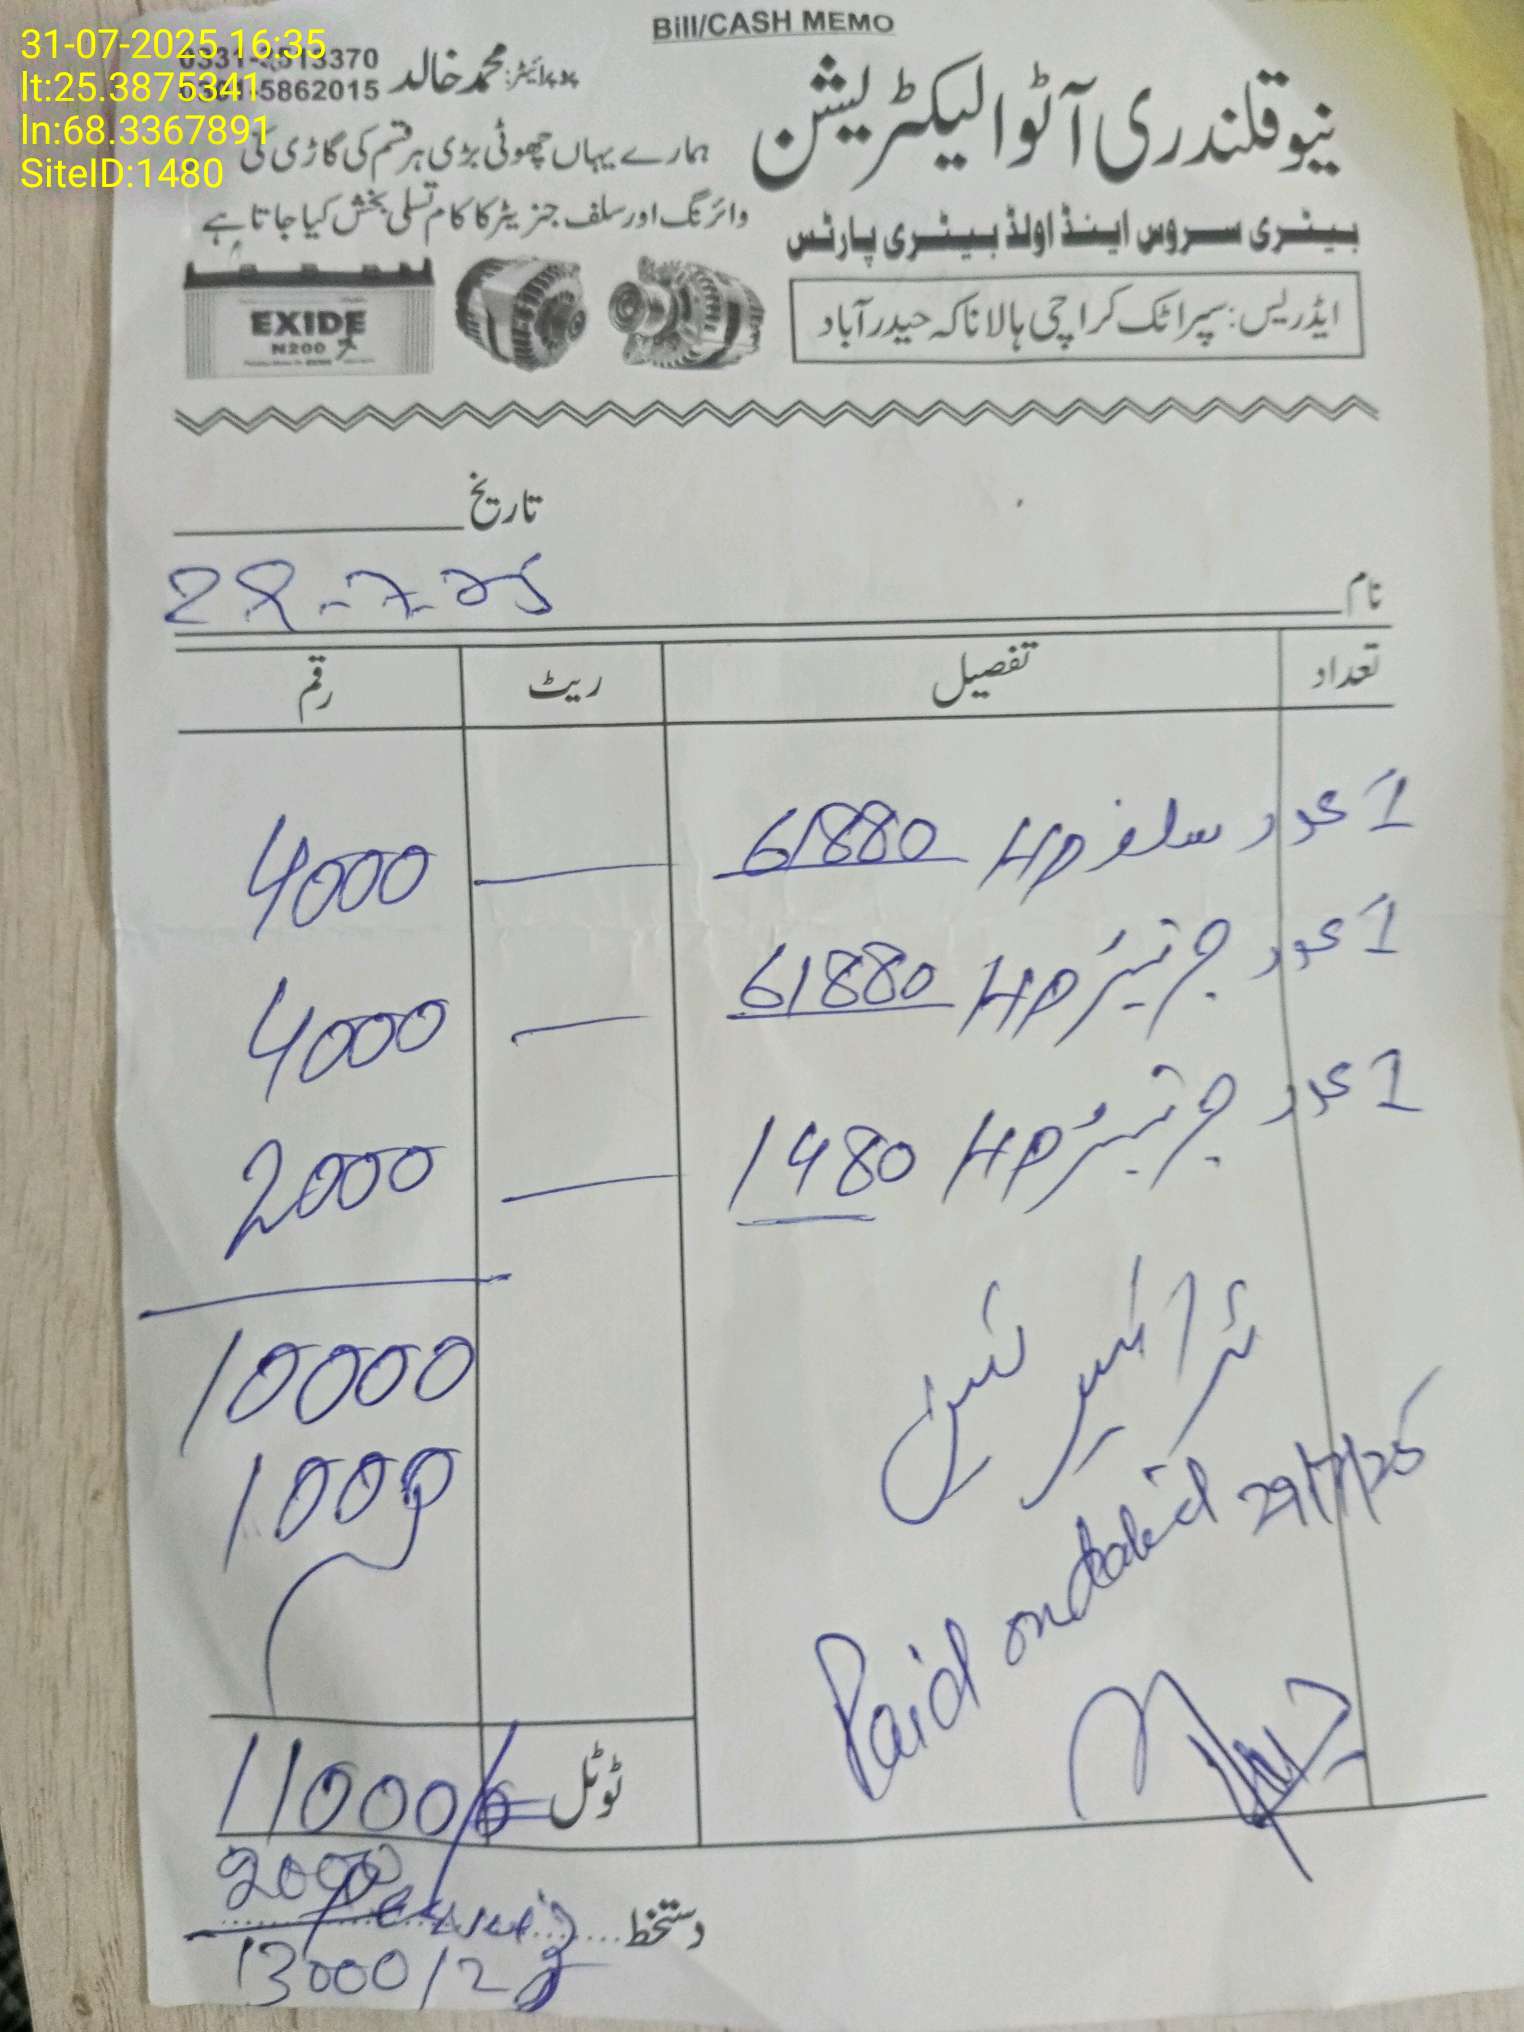 31-07-2025 16:35
lt:25.3875341
ln:68.3367891
SiteID:1480
Bill/CASH MEMO
نیو قلندری آٹو الیکٹریشن
پروپرائیٹر: محمد خالد
5862015
ہمارے یہاں چھوٹی بڑی ہر قسم کی گاڑی کی
وائرنگ اور سلف جنریٹر کا کام تسلی بخش کیا جاتا ہے
بیٹری سروس اینڈ اولڈ بیٹری پارٹس
ایڈریس: سپر اٹک کراچی ہالا ناکہ حیدرآباد
EXIDE
N200
تاریخ
28-7-25
نام
تعداد تفصیل ریٹ رقم
1 عدد سلف HP 61880 — 4000
1 عدد جرنیٹر HP 61880 — 4000
1 عدد جرنیٹر HP 1480 — 2000
10000
1000
Paid on dated 29/7/25
ٹوٹل 11000
2000
دستخط
13000/